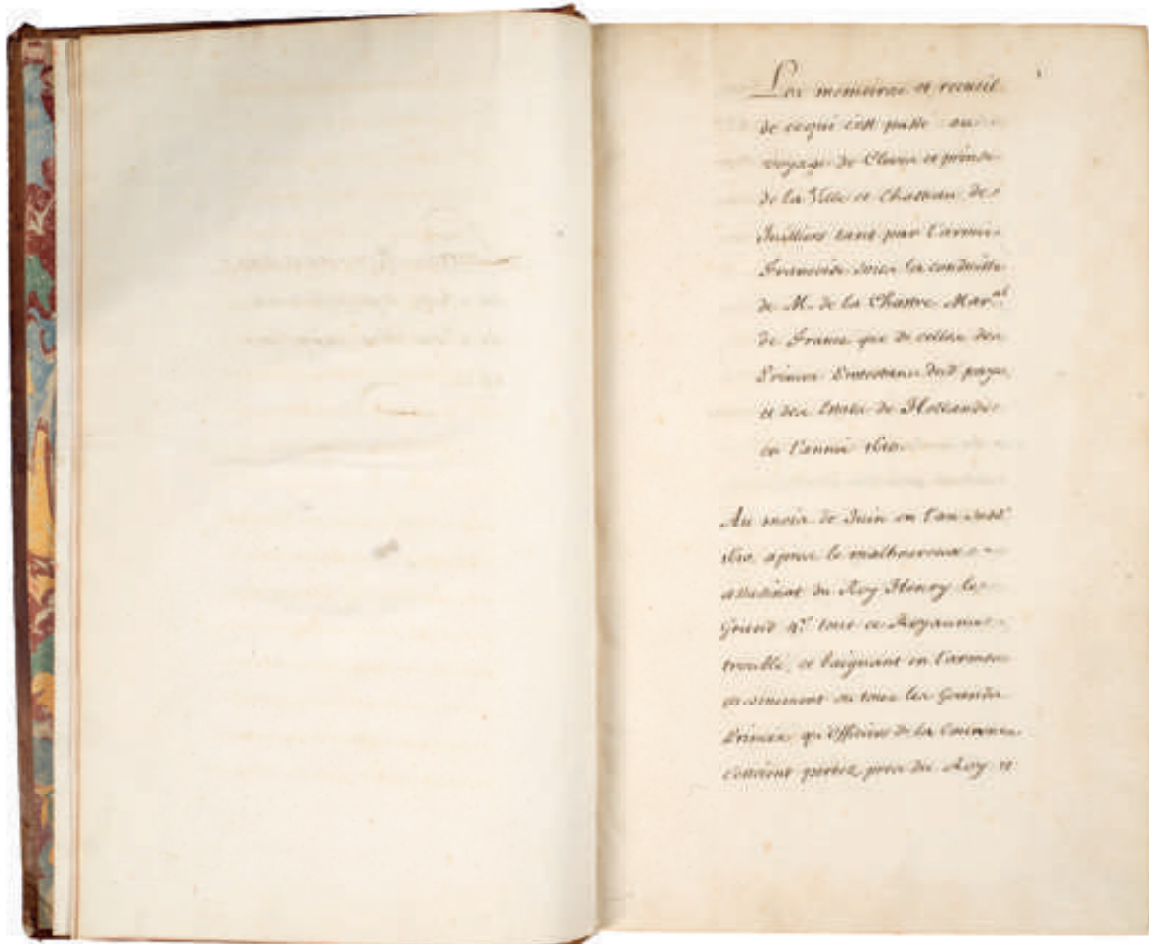 1
Les memoires et recueil
de ce qui s'est passé au
voyage de Cleves et prinse
de la Ville et Chasteau de
Juilliers tant par l'armée
Françoise sous la conduitte
de M. de la Chastre Mar.al
de France que de celles des
Princes Protestans dud. pays
et des Estats de Hollande
en l'année 1610.
Au mois de Juin en l'an susd.
1610. apres le malheureux
assassinat du Roy Henry le
Grand 4.e tout ce Royaume
troublé, se baignant en larmes
et tous les Grands
Princes qu'Officiers de la Couronne
s'estoient portez pres du Roy et